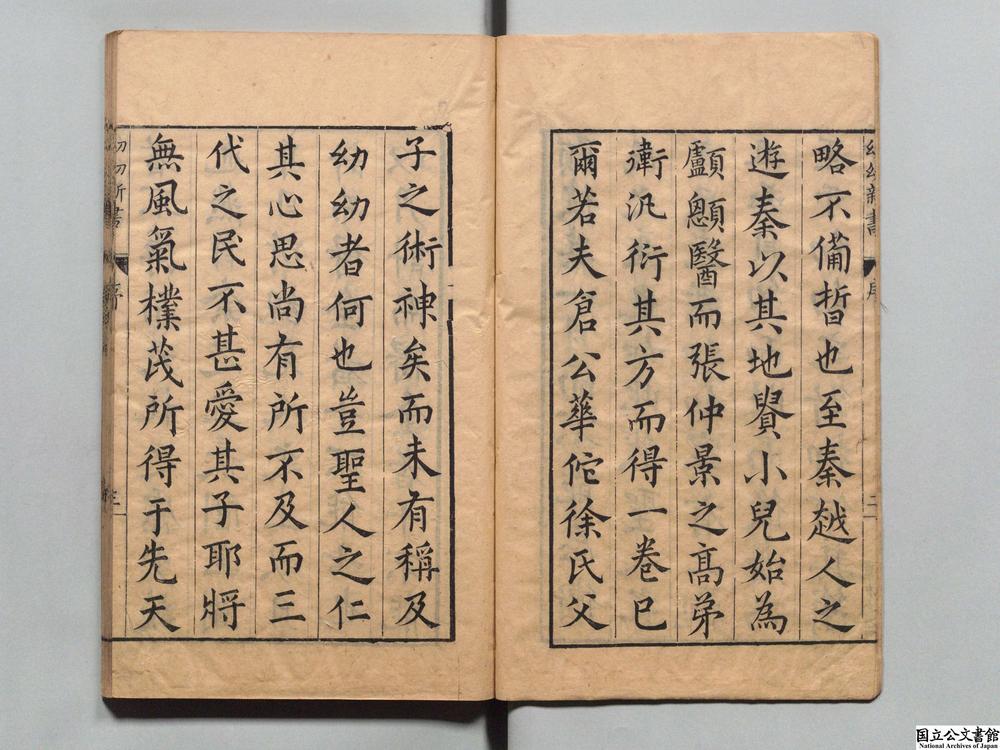 幼幼新書 序 二
略不備晳也至秦越人之
遊秦以其地贒小兒始為
顱顖醫而張仲景之高弟
衛汎衍其方而得一巻已
爾若夫倉公華佗徐氏父
子之術神矣而未有稱及
幼幼者何也豈聖人之仁
其心思尚有所不及而三
代之民不甚愛其子耶將
無風氣樸茂所得于先天
幼幼新書 序 三
国立公文書館
National Archives of Japan